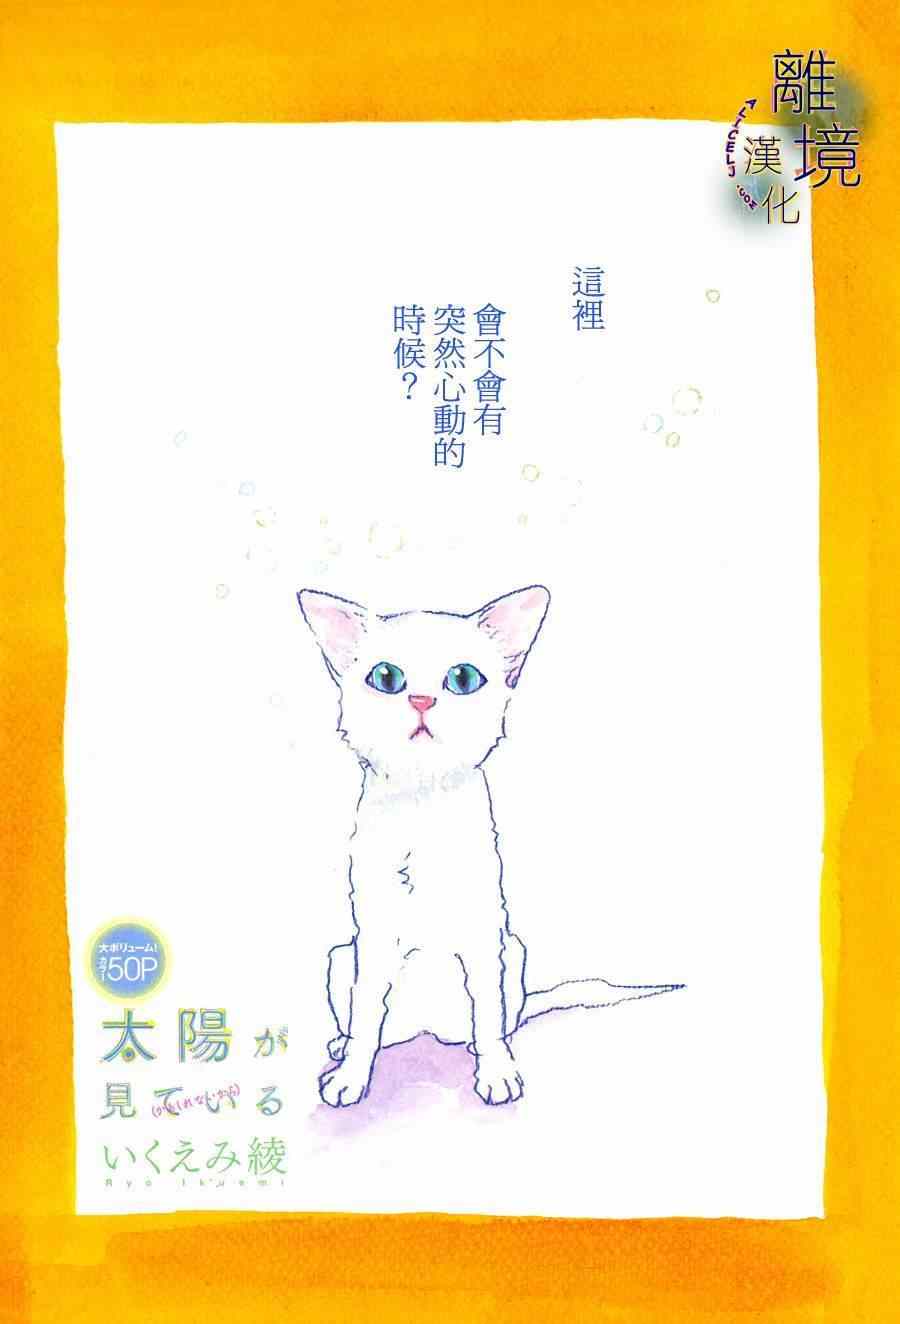 離境
漢化
ALICELJ.COM
這裡
會不會有
突然心動的
時候？
大ボリューム!
カラー50P
太陽が
見ている
(かもしれないから)
いくえみ綾
Ryo Ikuemi